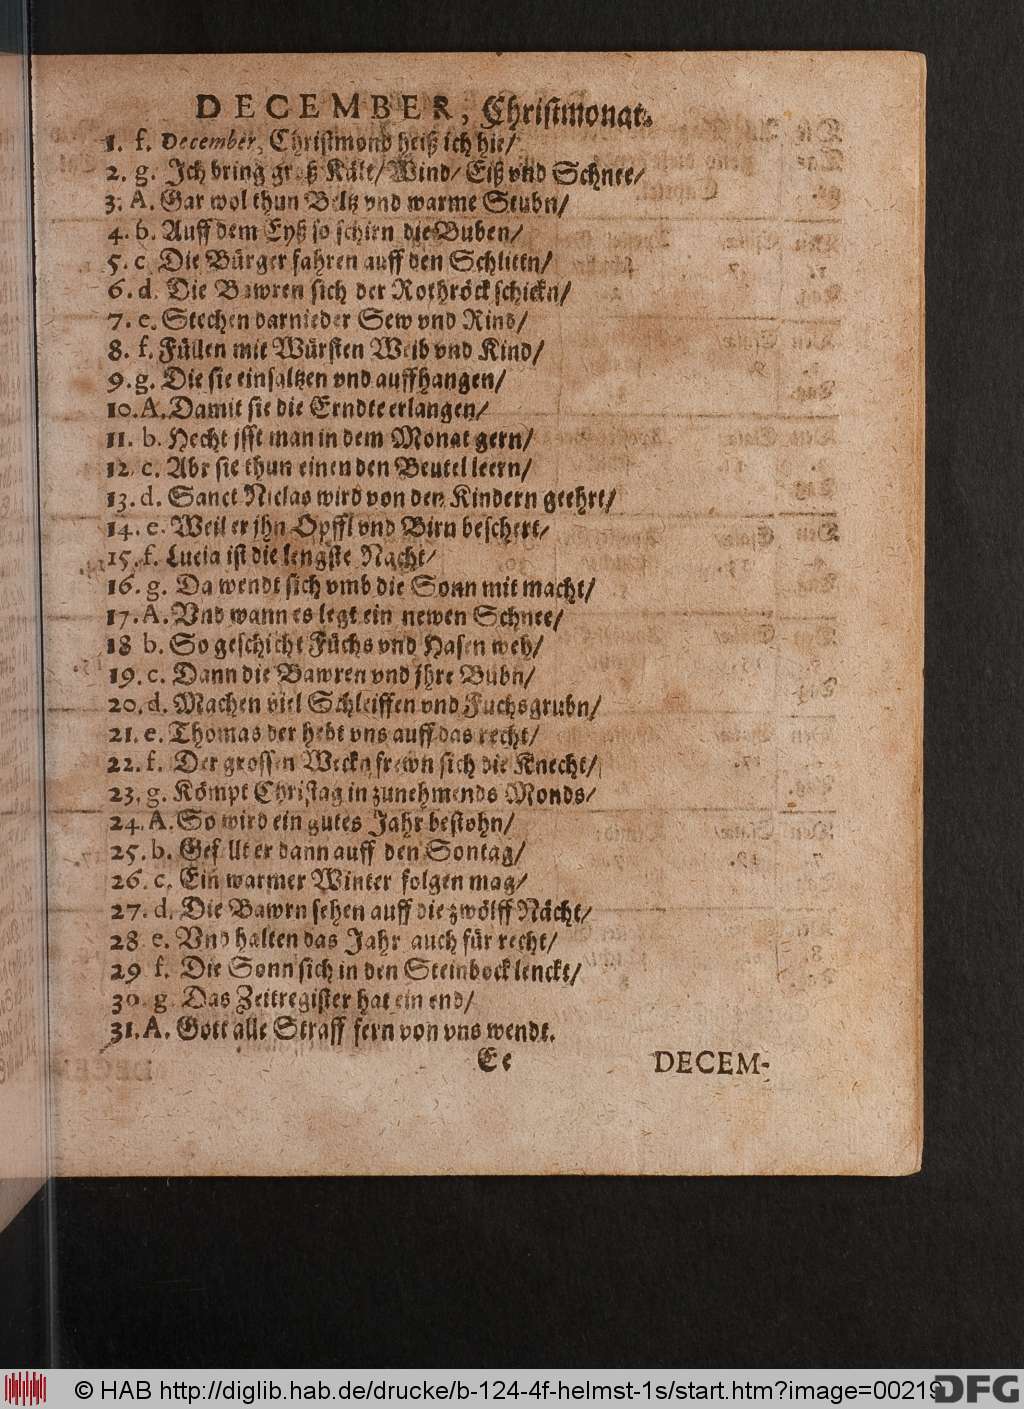 DECEMBER, Christmonat.
1. f. December, Christmond heiß ich hie/
2. g. Jch bring groß Kält/ Wind/ Eiß vnd Schnee/
3. A. Gar wol thun Beltz vnd warme Stubn/
4. b. Auff dem Eyß so schirn die Buben/
5. c. Die Bürger fahren auff den Schlittn/
6. d. Die Bawren sich der Rothröck schickn/
7. e. Stechen darnieder Sew vnd Rind/
8. f. Füllen mit Würsten Weib vnd Kind/
9. g. Die sie einsaltzen vnd auffhangen/
10. A. Damit sie die Erndte erlangen/
11. b. Hecht jsst man in dem Monat gern/
12. c. Abr sie thun einen den Beutel leern/
13. d. Sanct Niclas wird von den Kindern geehrt/
14. e. Weil er jhn Opffl vnd Birn beschert/
15. f. Lucia ist die lengste Nacht/
16. g. Da wendt sich vmb die Sonn mit macht/
17. A. Vnd wann es legt ein newen Schnee/
18 b. So geschicht Füchs vnd Hasen weh/
19. c. Dann die Bawren vnd jhre Bubn/
20. d. Machen viel Schleiffen vnd Fuchsgrubn/
21. e. Thomas der hebt vns auff das recht/
22. f. Der grossen Weckn frewn sich die Knecht/
23. g. Kömpt Christag in zunehmends Monds/
24. A. So wird ein gutes Jahr bestohn/
25. b. Gefellt er dann auff den Sontag/
26. c. Ein warmer Winter folgen mag/
27. d. Die Bawrn sehen auff die zwölff Nächt/
28 e. Vnd halten das Jahr auch für recht/
29 f. Die Sonn sich in den Steinbock lenckt/
30. g. Das Zeitregister hat ein end/
31. A. Gott alle Straff fern von vns wendt.
Ee DECEM-
© HAB http://diglib.hab.de/drucke/b-124-4f-helmst-1s/start.htm?image=00219
DFG